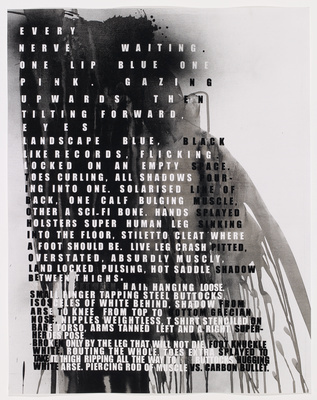 EVERY
NERVE WAITING.
ONE LIP BLUE ONE
PINK. GAZING
UPWARDS THEN
TILTING FORWARD,
EYES
LANDSCAPE BLUE, BLACK
LIKE RECORDS, FLICKING.
LOCKED ON AN EMPTY SPACE.
TOES CURLING, ALL SHADOWS POUR-
ING INTO ONE. SOLARISED LINE OF
BACK, ONE CALF BULGING MUSCLE,
OTHER A SCI-FI BONE. HANDS SPLAYED
HOLSTERS SUPER HUMAN LEG SINKING
INTO THE FLOOR, STILETTO CLEAT WHERE
A FOOT SHOULD BE. LIVE LEG CRASH PITTED,
OVERSTATED, ABSURDLY MUSCLY.
LAND LOCKED PULSING, HOT SADDLE SHADOW
BETWEEN THIGHS.
HAIR HANGING LOOSE.
SMALL FINGER TAPPING STEEL BUTTOCKS
ISOSCELES OF WHITE BEHIND, SHADOW FROM
ARSE TO KNEE FROM TOP TO BOTTOM, GRECIAN
NOSE, NIPPLES WEIGHTLESS, T.SHIRT STENCILLED ON
BARE TORSO, ARMS TANNED LEFT AND A RIGHT SUPER-
HERO POSE
BROKEN ONLY BY THE LEG THAT WILL NOT DIE. FOOT KNUCKLE
WHITE ROUTING THE WHOLE, TOES EXTRA SPLAYED TO
RIPPING ALL THE WAY TO BUTTOCKS, HUGGING
WHITE ARSE. PIERCING ROD OF MUSCLE VS. CARBON BULLET.